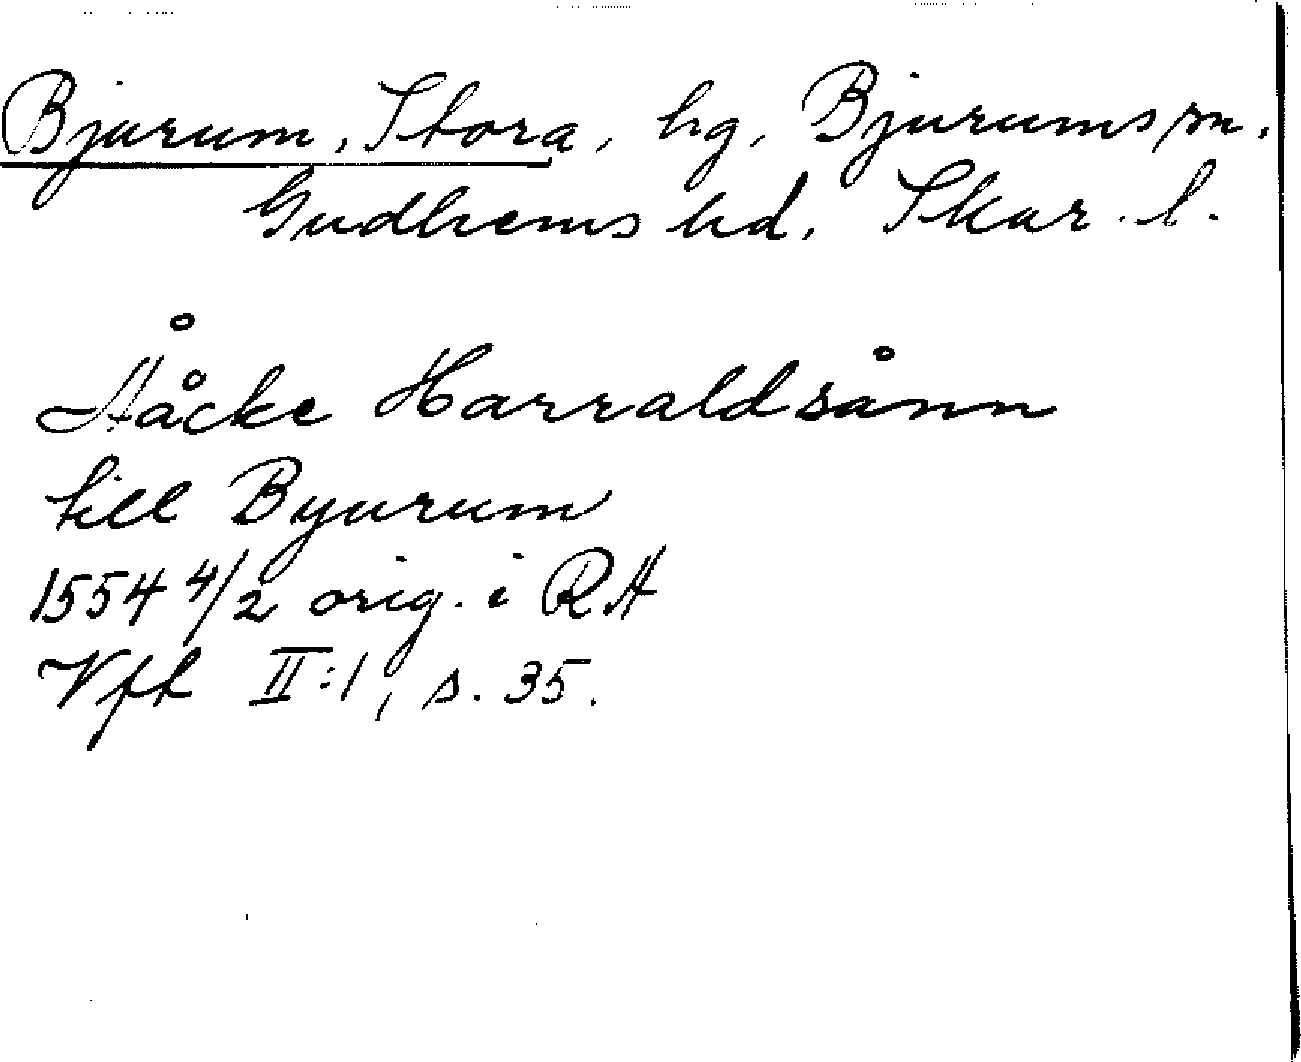 Bjurum, Stora, hg, Bjurums sn.
Gudhems hd, Skar. l.
Ååcke Harraldsånn
till Byurum
1554 4/2 orig. i RA
Vft II:1, s. 35.